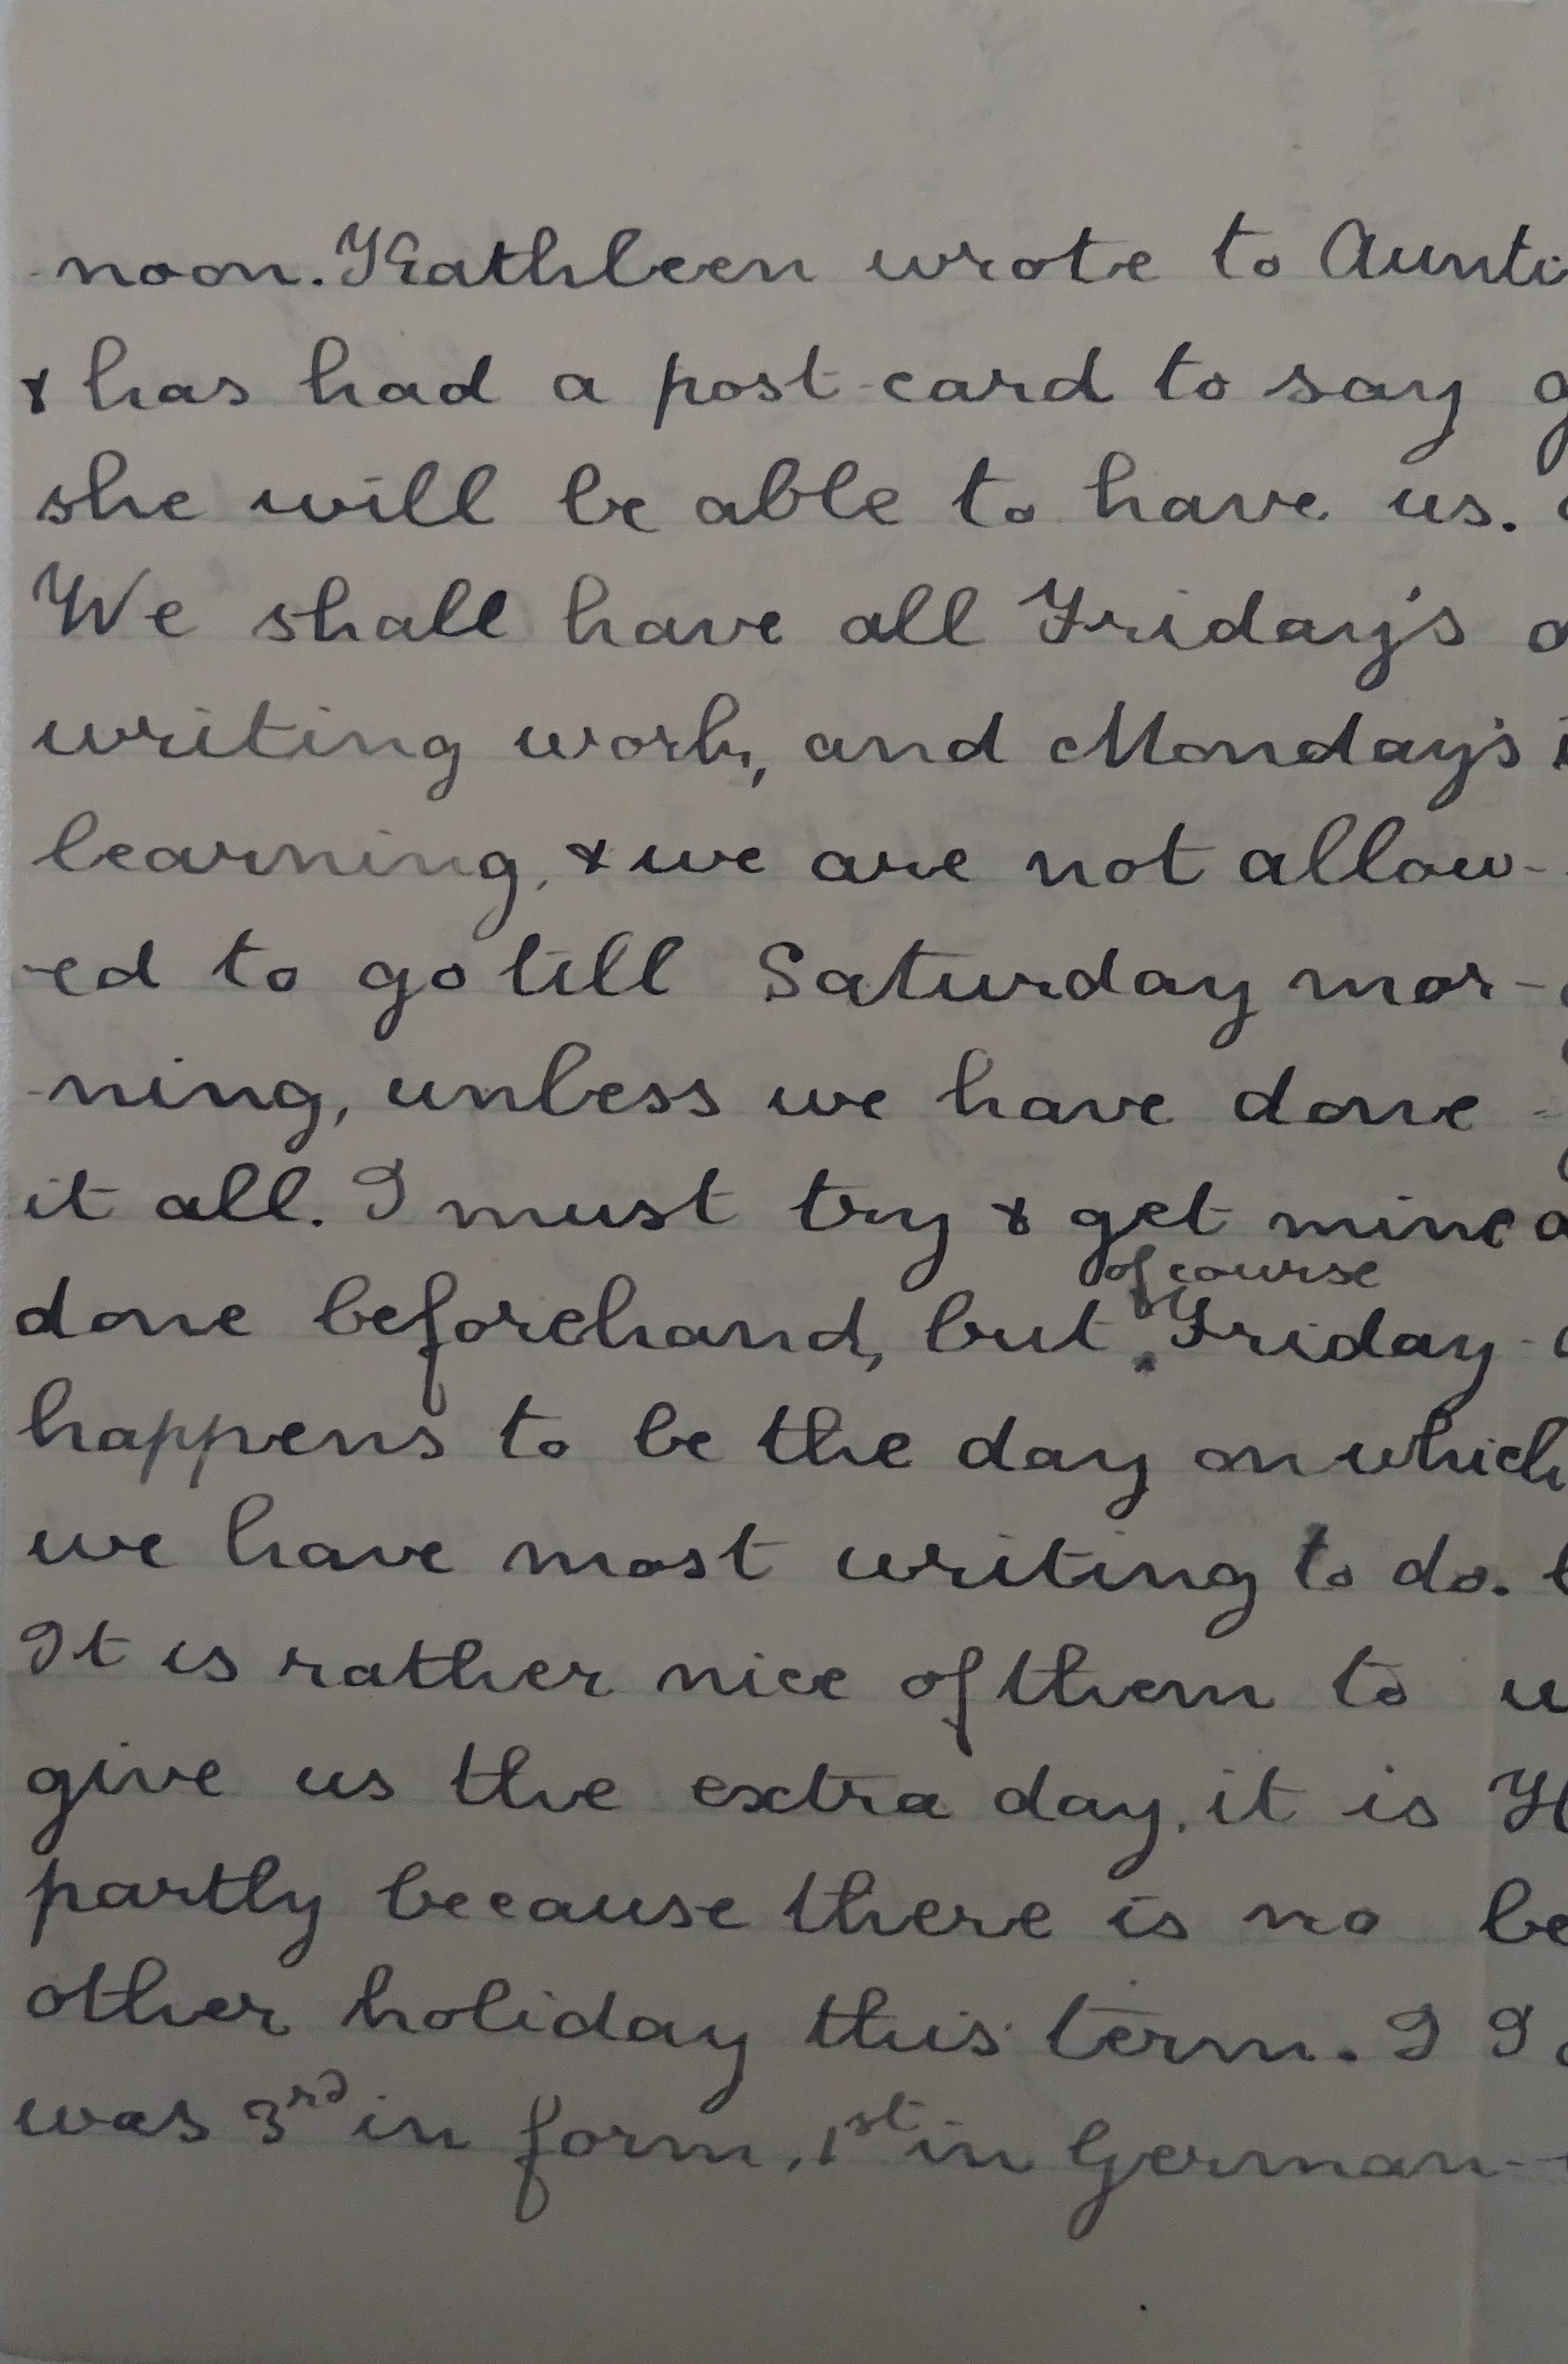 -noon. Kathleen wrote to Aunti
& has had a post-card to say
she will be able to have us.
We shall have all Friday's
writing work, and Monday's
learning, & we are not allow-
-ed to go till Saturday mor-
-ning, unless we have done
it all. I must try & get mine
of course
done beforehand, but Friday
happens to be the day on which
we have most writing to do.
It is rather nice of them to
give us the extra day, it is
partly because there is no
other holiday this term. I
was 3rd in form, 1st in German